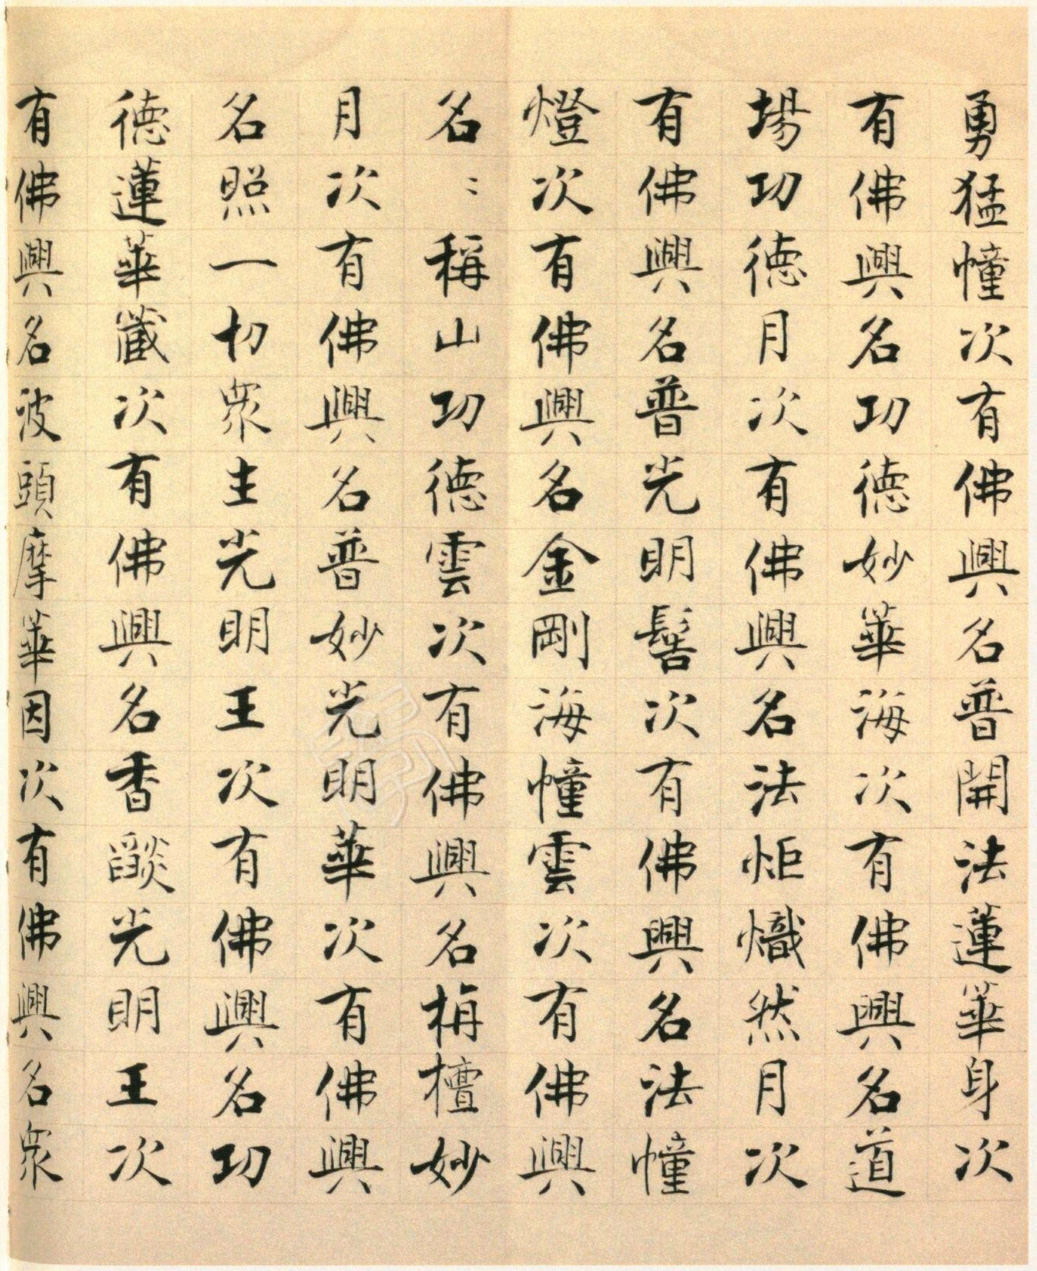 勇猛幢次有佛興名普開法蓮華身次
有佛興名功德妙華海次有佛興名道
場功德月次有佛興名法炬熾然月次
有佛興名普光明髻次有佛興名法幢
燈次有佛興名金剛海幢雲次有佛興
名〻稱山功德雲次有佛興名栴檀妙
月次有佛興名普妙光明華次有佛興
名照一切衆主光明王次有佛興名功
德蓮華藏次有佛興名香燄光明王次
有佛興名波頭摩華因次有佛興名衆